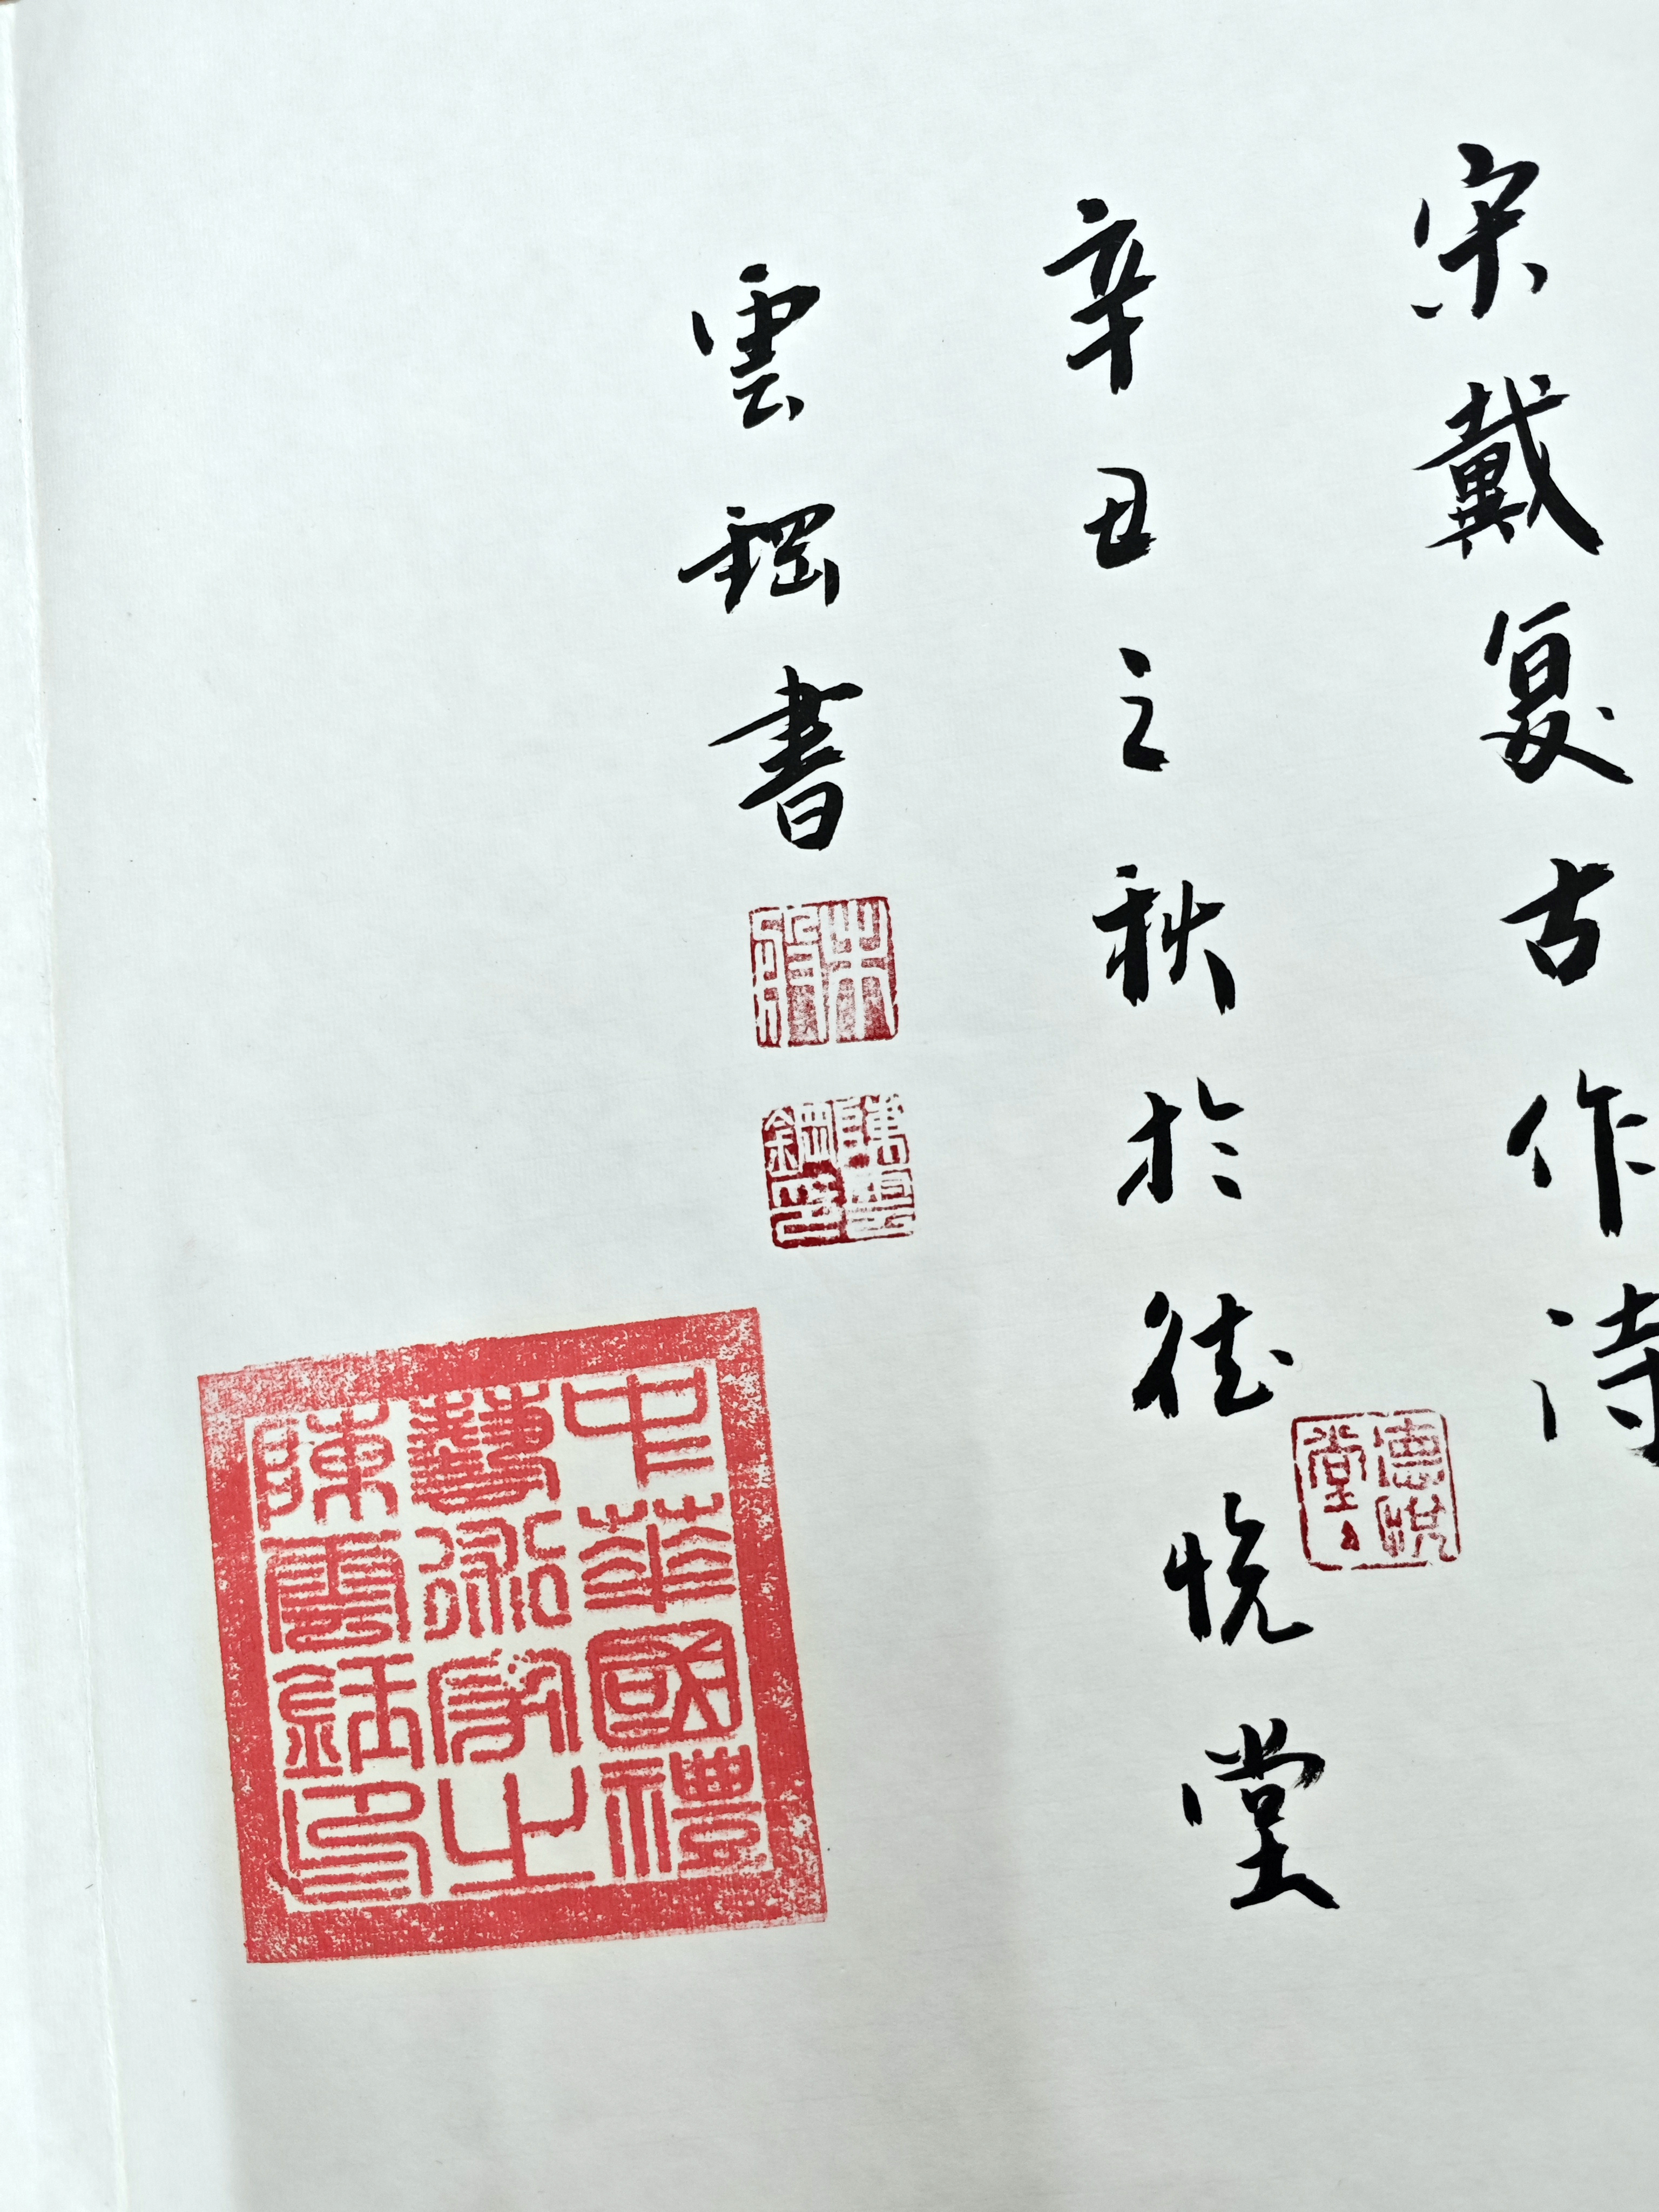 宋戴复古作诗
辛丑之秋於德悦堂
德悦堂
雲鋼書
陳雲鋼印
中華國禮
藝術家之
陳雲鋼印